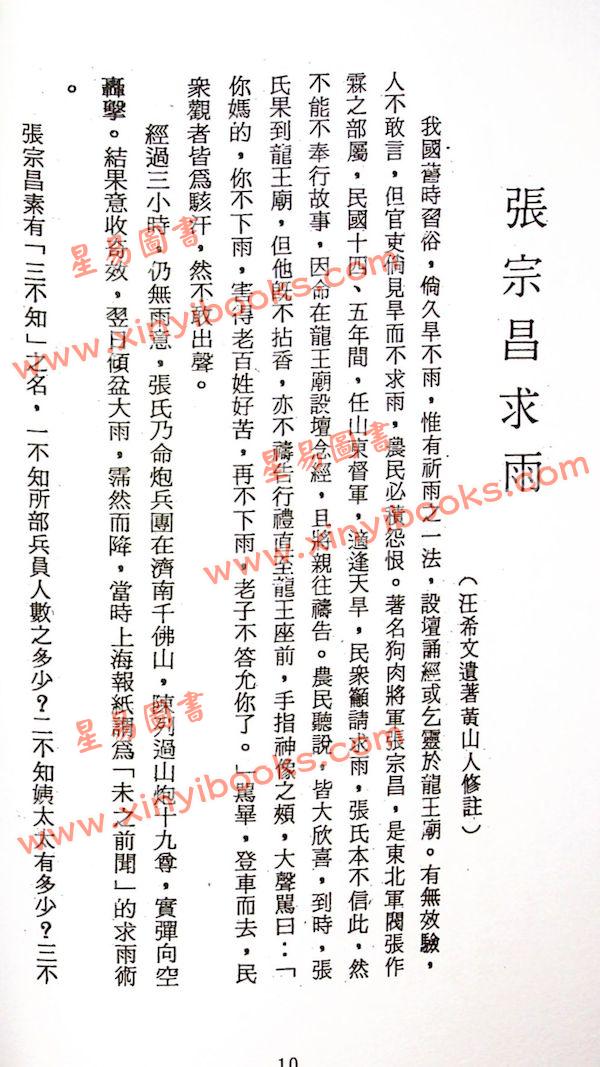 張宗昌求雨
(汪希文遺著黃山人修註)
我國舊時習俗，倘久旱不雨，惟有祈雨之一法，設壇誦經或乞靈於龍王廟。有無效驗，
人不敢言，但官吏倘見旱而不求雨，農民必積怨恨。著名狗肉將軍張宗昌，是東北軍閥張作
霖之部屬，民國十四、五年間，任山東督軍，適逢天旱，民衆籲請求雨，張氏本不信此，然
不能不奉行故事，因命在龍王廟設壇念經，且將親往禱告。農民聽說，皆大欣喜，到時，張
氏果到龍王廟，但他既不拈香，亦不禱告行禮直至龍王座前，手指神像之頰，大聲罵曰：「
你媽的，你不下雨，害得老百姓好苦，再不下雨，老子不答允你了。」罵畢，登車而去，民
衆觀者皆爲駭汗，然不敢出聲。
經過三小時，仍無雨意，張氏乃命炮兵團在濟南千佛山，陳列過山炮十九尊，實彈向空
轟擊。結果意收奇效，翌日傾盆大雨，霈然而降，當時上海報紙謂爲「未之前聞」的求雨術
。
張宗昌素有「三不知」之名，一不知所部兵員人數之多少？二不知姨太太有多少？三不
10
星易圖書
www.xinyibooks.com
星易圖書
www.xinyibooks.com
星易圖書
www.xinyibooks.com